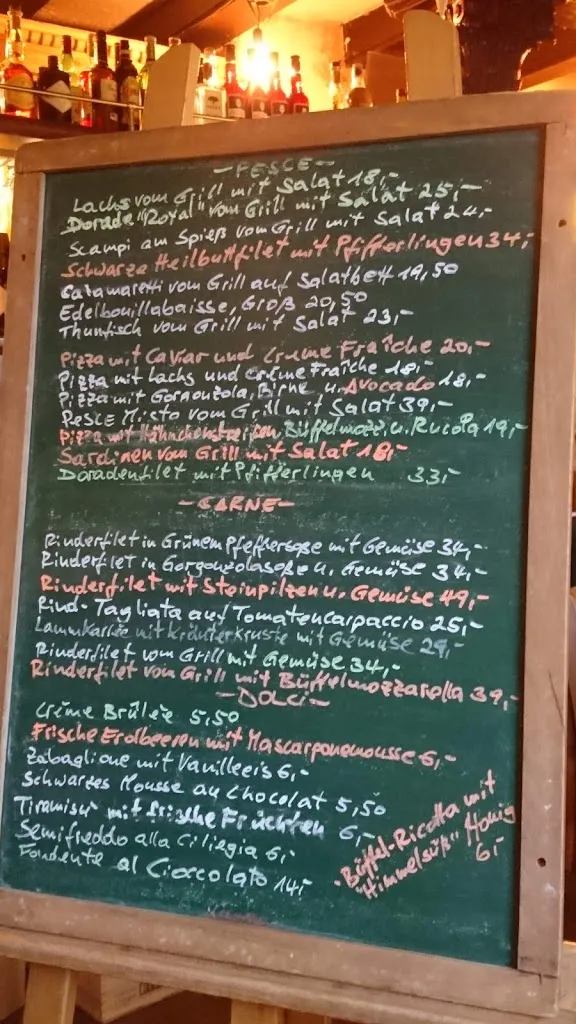 - PESCE -
Lachs vom Grill mit Salat 18,-
Dorade "Royal" vom Grill mit Salat 25,-
Scampi am Spieß vom Grill mit Salat 24,-
Schwarze Heilbuttfilet mit Pfifferlingen 34,-
Calamaretti vom Grill auf Salatbett 19,50
Edelbouillabaisse, Groß 20,50
Thunfisch vom Grill mit Salat 23,-
Pizza mit Caviar und Creme Fraîche 20,-
Pizza mit Lachs und Crème Fraîche 18,-
Pizza mit Gorgonzola, Birne u. Avocado 18,-
Pesce Misto vom Grill mit Salat 39,-
Pizza mit Hähnchenstreifen, Büffelmozz. u. Rucola 19,-
Sardinen vom Grill mit Salat 18,-
Doradenfilet mit Pfifferlingen 33,-
- CARNE -
Rinderfilet in Grünem Pfeffersoße mit Gemüse 34,-
Rinderfilet in Gorgonzolasoße u. Gemüse 34,-
Rinderfilet mit Steinpilzen u. Gemüse 49,-
Rind-Tagliata auf Tomatencarpaccio 25,-
Lammkarree mit Kräuterkruste mit Gemüse 29,-
Rinderfilet vom Grill mit Gemüse 34,-
Rinderfilet von Grill mit Büffelmozzarella 39,-
- DOLCI -
Crème Brûlée 5,50
Frische Erdbeeren mit Mascarponemousse 6,-
Zabaglione mit Vanilleeis 6,-
Schwarzes Mousse au Chocolat 5,50
Tiramisu mit frische Früchten 6,-
Semifreddo alla Ciliegia 6,-
Fondente al Cioccolato 14,-
- Büffel-Ricotta mit
"Himmelsüß" Honig
6,-